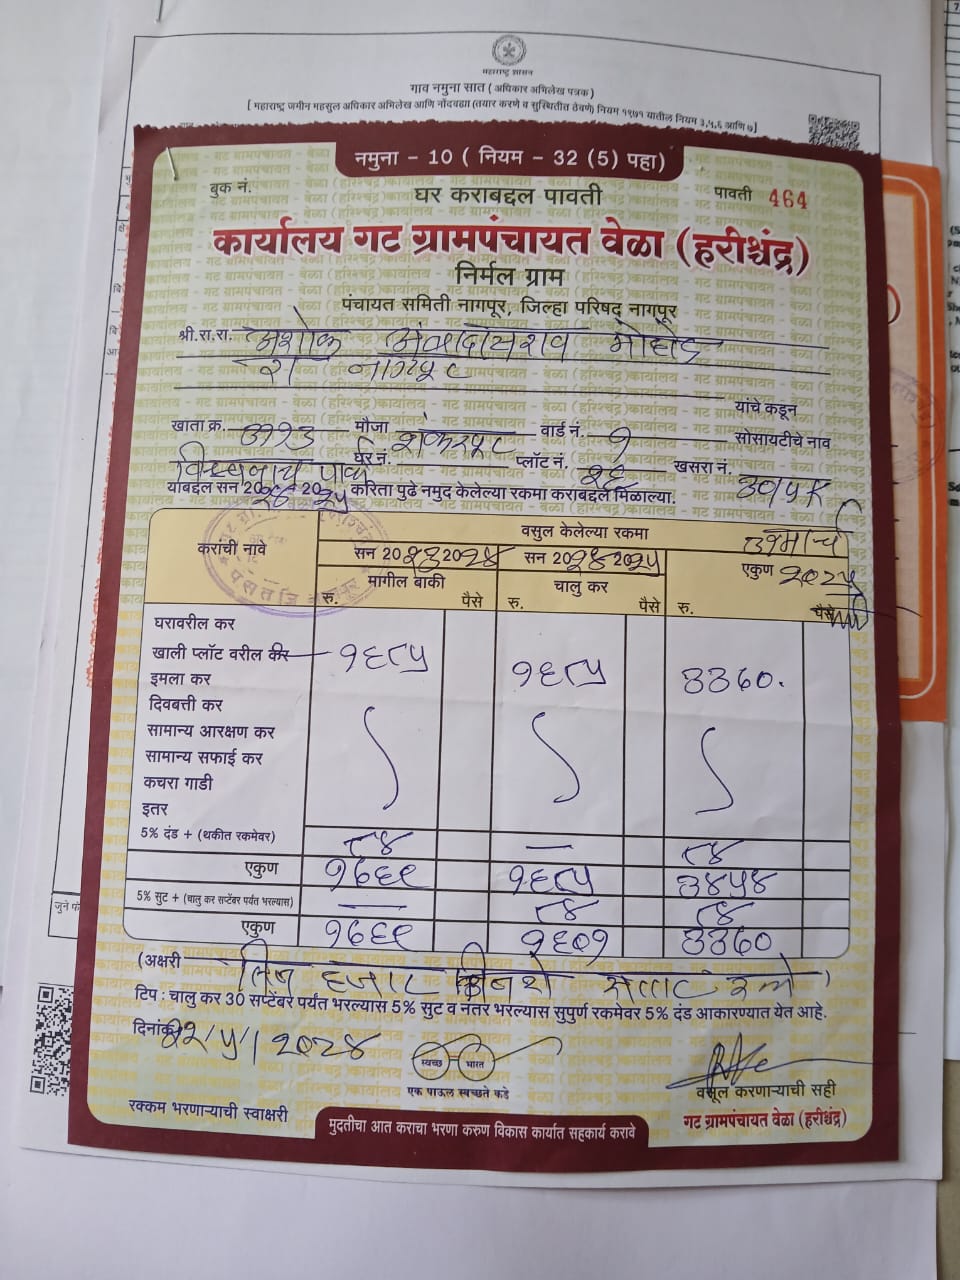 महाराष्ट्र शासन
गाव नमुना सात ( अधिकार अभिलेख पत्रक )
[ महाराष्ट्र जमीन महसूल अधिकार अभिलेख आणि नोंदवह्या (तयार करणे व सुस्थितीत ठेवणे) नियम १९७१ यातील नियम ३,५,६ आणि ७]
नमुना - 10 ( नियम - 32 (5) पहा)
बुक नं. पावती 464
घर कराबद्दल पावती
कार्यालय गट ग्रामपंचायत वेळा (हरीश्चंद्र)
निर्मल ग्राम
पंचायत समिती नागपूर, जिल्हा परिषद नागपूर
श्री.रा.रा. अशोक अंबादासराव मोहोड
रा नागपूर
यांचे कडून
खाता क्र. मौजा शंकरपूर वार्ड नं. १ सोसायटीचे नाव
घर नं. प्लॉट नं. २६ खसरा नं.
याबद्दल सन 20२४ 20२५ करिता पुढे नमुद केलेल्या रकमा कराबद्दल मिळाल्या.
करांची नावे वसुल केलेल्या रकमा
सन 20२३ 20२४ सन 20२४ 20२५ एकुण
मागील बाकी चालु कर
रु. पैसे रु. पैसे रु. पैसे
घरावरील कर
खाली प्लॉट वरील कर १६८५ १६८५ ३३७०.
इमला कर
दिवबत्ती कर
सामान्य आरक्षण कर
सामान्य सफाई कर
कचरा गाडी
इतर
5% दंड + (थकीत रकमेवर) ८४ — ८४
एकुण १७६९ १६८५ ३४५४
5% सुट + (चालु कर सप्टेंबर पर्यंत भरल्यास) — ८४ ८४
एकुण १७६९ १६०१ ३३७०
(अक्षरी तिन हजार तिनशे सत्तार रुपये
टिप : चालु कर 30 सप्टेंबर पर्यंत भरल्यास 5% सुट व नंतर भरल्यास सुपुर्ण रकमेवर 5% दंड आकारण्यात येत आहे.
दिनांक २२/५/२०२४
स्वच्छ भारत
एक पाऊल स्वच्छते कडे
वसूल करणाऱ्याची सही
रक्कम भरणाऱ्याची स्वाक्षरी
गट ग्रामपंचायत वेळा (हरीश्चंद्र)
मुदतीचा आत कराचा भरणा करुण विकास कार्यात सहकार्य करावे